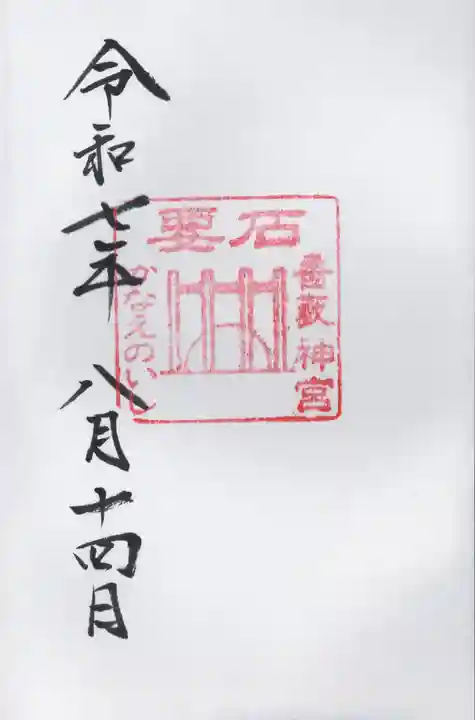 令和七年 八月十四日
要石
神宮
かなえのいし